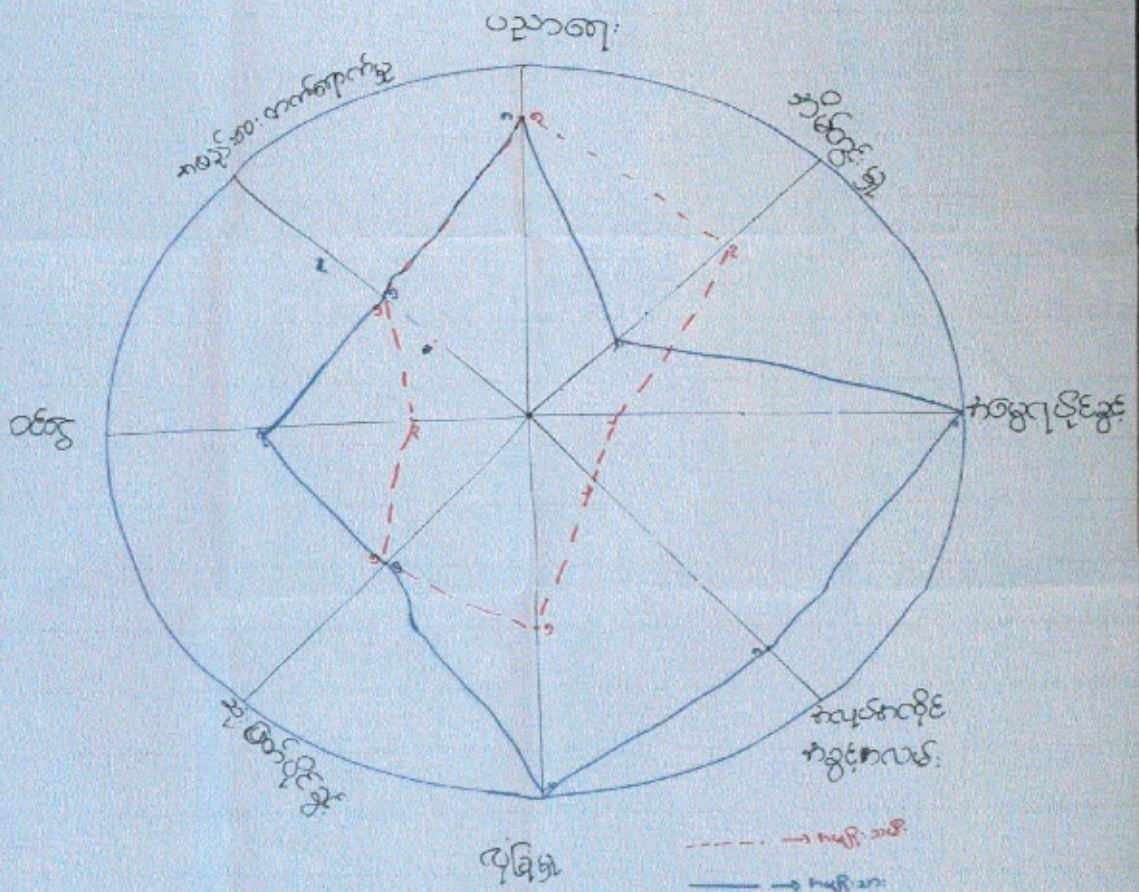 ပညာရေး
အိမ်တွင်းမှု
အမွေရပိုင်ခွင့်
အလုပ်အကိုင်
အခွင့်အလမ်း
လုံခြုံမှု
ဆုံးဖြတ်ပိုင်ခွင့်
ဝင်ငွေ
အစည်းအဝေးတက်ရောက်မှု
အမျိုးသမီး
အမျိုးသား